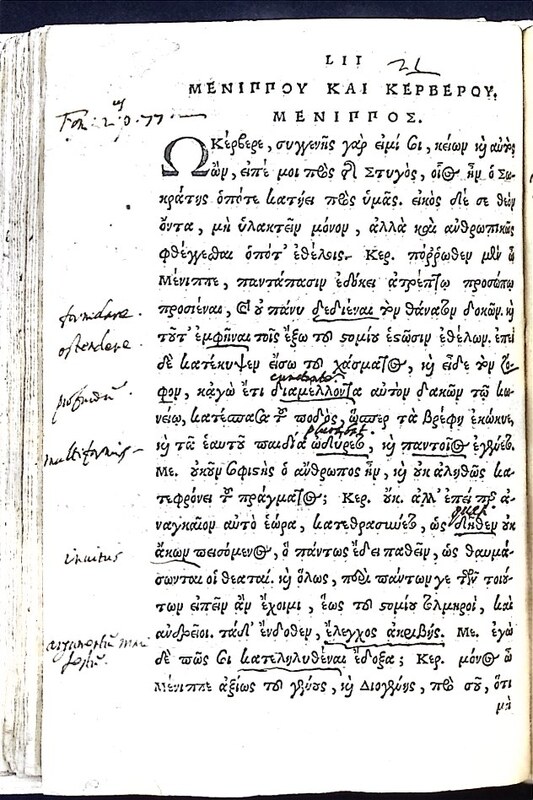 LII 21
ΜΕΝΙΠΠΟΥ ΚΑΙ ΚΕΡΒΕΡΟΥ.
ΜΕΝΙΠΠΟΣ.
Ὦ Κέρβερε, συγγενὴς γάρ εἰμί σοι, κύων καὶ αὐτὸς
ὢν, εἰπέ μοι πρὸς τῆς Στυγὸς, οἷος ἦν ὁ Σω-
κράτης ὁπότε κατῄει πρὸς ὑμᾶς. εἰκὸς δέ σε θεὸν
ὄντα, μὴ ὑλακτεῖν μόνον, ἀλλὰ καὶ ἀνθρωπικῶς
φθέγγεσθαι ὁπότ' ἐθέλεις. Κερ. πόῤῥωθεν μὲν ὦ
Μένιππε, παντάπασιν ἐδόκει ἀτρέπτῳ προσώπῳ
formidare.
προσιέναι, καὶ οὐ πάνυ δεδιέναι τὸν θάνατον δοκῶν. καὶ
ostendere
τοῦτ' ἐμφῆναι τοῖς ἔξω τοῦ στομίου ἑστῶσιν ἐθέλων. ἐπεὶ
δὲ κατέκυψεν εἴσω τοῦ χάσματος, καὶ εἶδε τὸν ζό-
φον, κᾀγὼ ἔτι διαμέλλοντα αὐτὸν δακὼν τῷ κω-
νείῳ, κατέσπασα τοῦ ποδὸς, ὥσπερ τὰ βρέφη ἐκώκυε,
multiformis
καὶ τὰ ἑαυτοῦ παιδία ὠδύρετο, καὶ παντοῖος ἐγένετο.
Με. οὐκοῦν σοφιστὴς ὁ ἄνθρωπος ἦν, καὶ οὐκ ἀληθῶς κα-
τεφρόνει τοῦ πράγματος; Κερ. οὐκ. ἀλλ' ἐπεί περ ἀ-
ναγκαῖον αὐτὸ ἑώρα, κατεθρασύνετο, ὡς δῆθεν οὐκ
invitus
ἄκων πεισόμενος, ὃ πάντως ἔδει παθεῖν, ὡς θαυμά-
σωνται οἱ θεαταί. καὶ ὅλως, περὶ πάντων γε τῶν τοιού-
των εἰπεῖν ἂν ἔχοιμι, ἕως τοῦ στομίου τολμηροὶ, καὶ
ἀνδρεῖοι. τὰ δ' ἔνδοθεν, ἔλεγχος ἀκριβής. Με. ἐγὼ
δὲ πῶς σοι κατεληλυθέναι ἔδοξα; Κερ. μόνος ὦ
Μένιππε ἀξίως τοῦ γένους, καὶ Διογένης, πρὸ σοῦ, ὅτι
μὴ